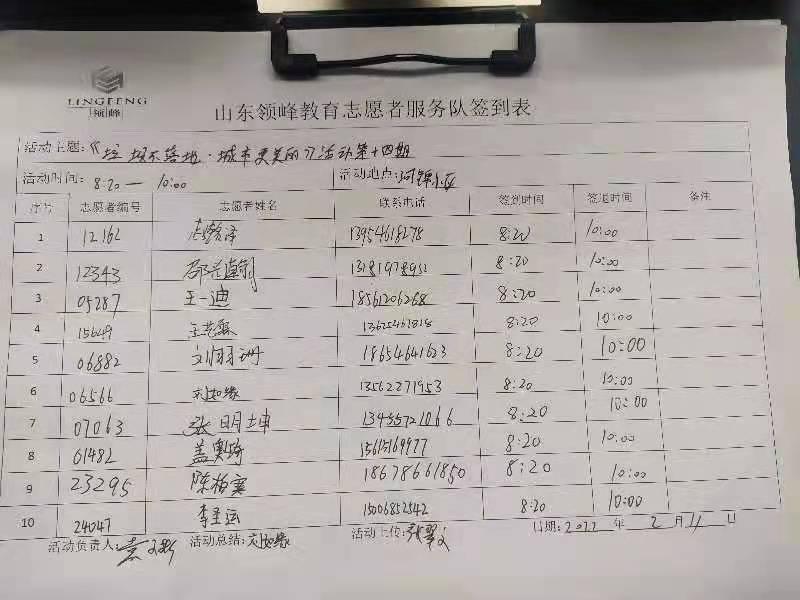 LINGFENG
领峰
山东领峰教育志愿者服务队签到表
活动主题:《垃圾不落地·城市更美丽》活动第十四期
活动时间: 8:20— 10:00 活动地点:河锦小区
序号 志愿者编号 志愿者姓名 联系电话 签到时间 签退时间 备注
1 12162 13954618278 8:20 10:00
2 12343 8:20 10:00
3 05287 王一迪 18561206268 8:20 10:00
4 15649 8:20 10:00
5 06882 刘羽珊 18654641623 8:20 10:00
6 06566 刘如缘 13562271953 8:20 10:00
7 07063 张明坤 8:20 10:00
8 01482 盖奥琦 8:20 10:00
9 23295 18678661850 8:20 10:00
10 24047 15006852542 8:20 10:00
活动负责人: 活动总结:刘如缘 活动上传:张翠文 日期:2022 年 2 月 11 日